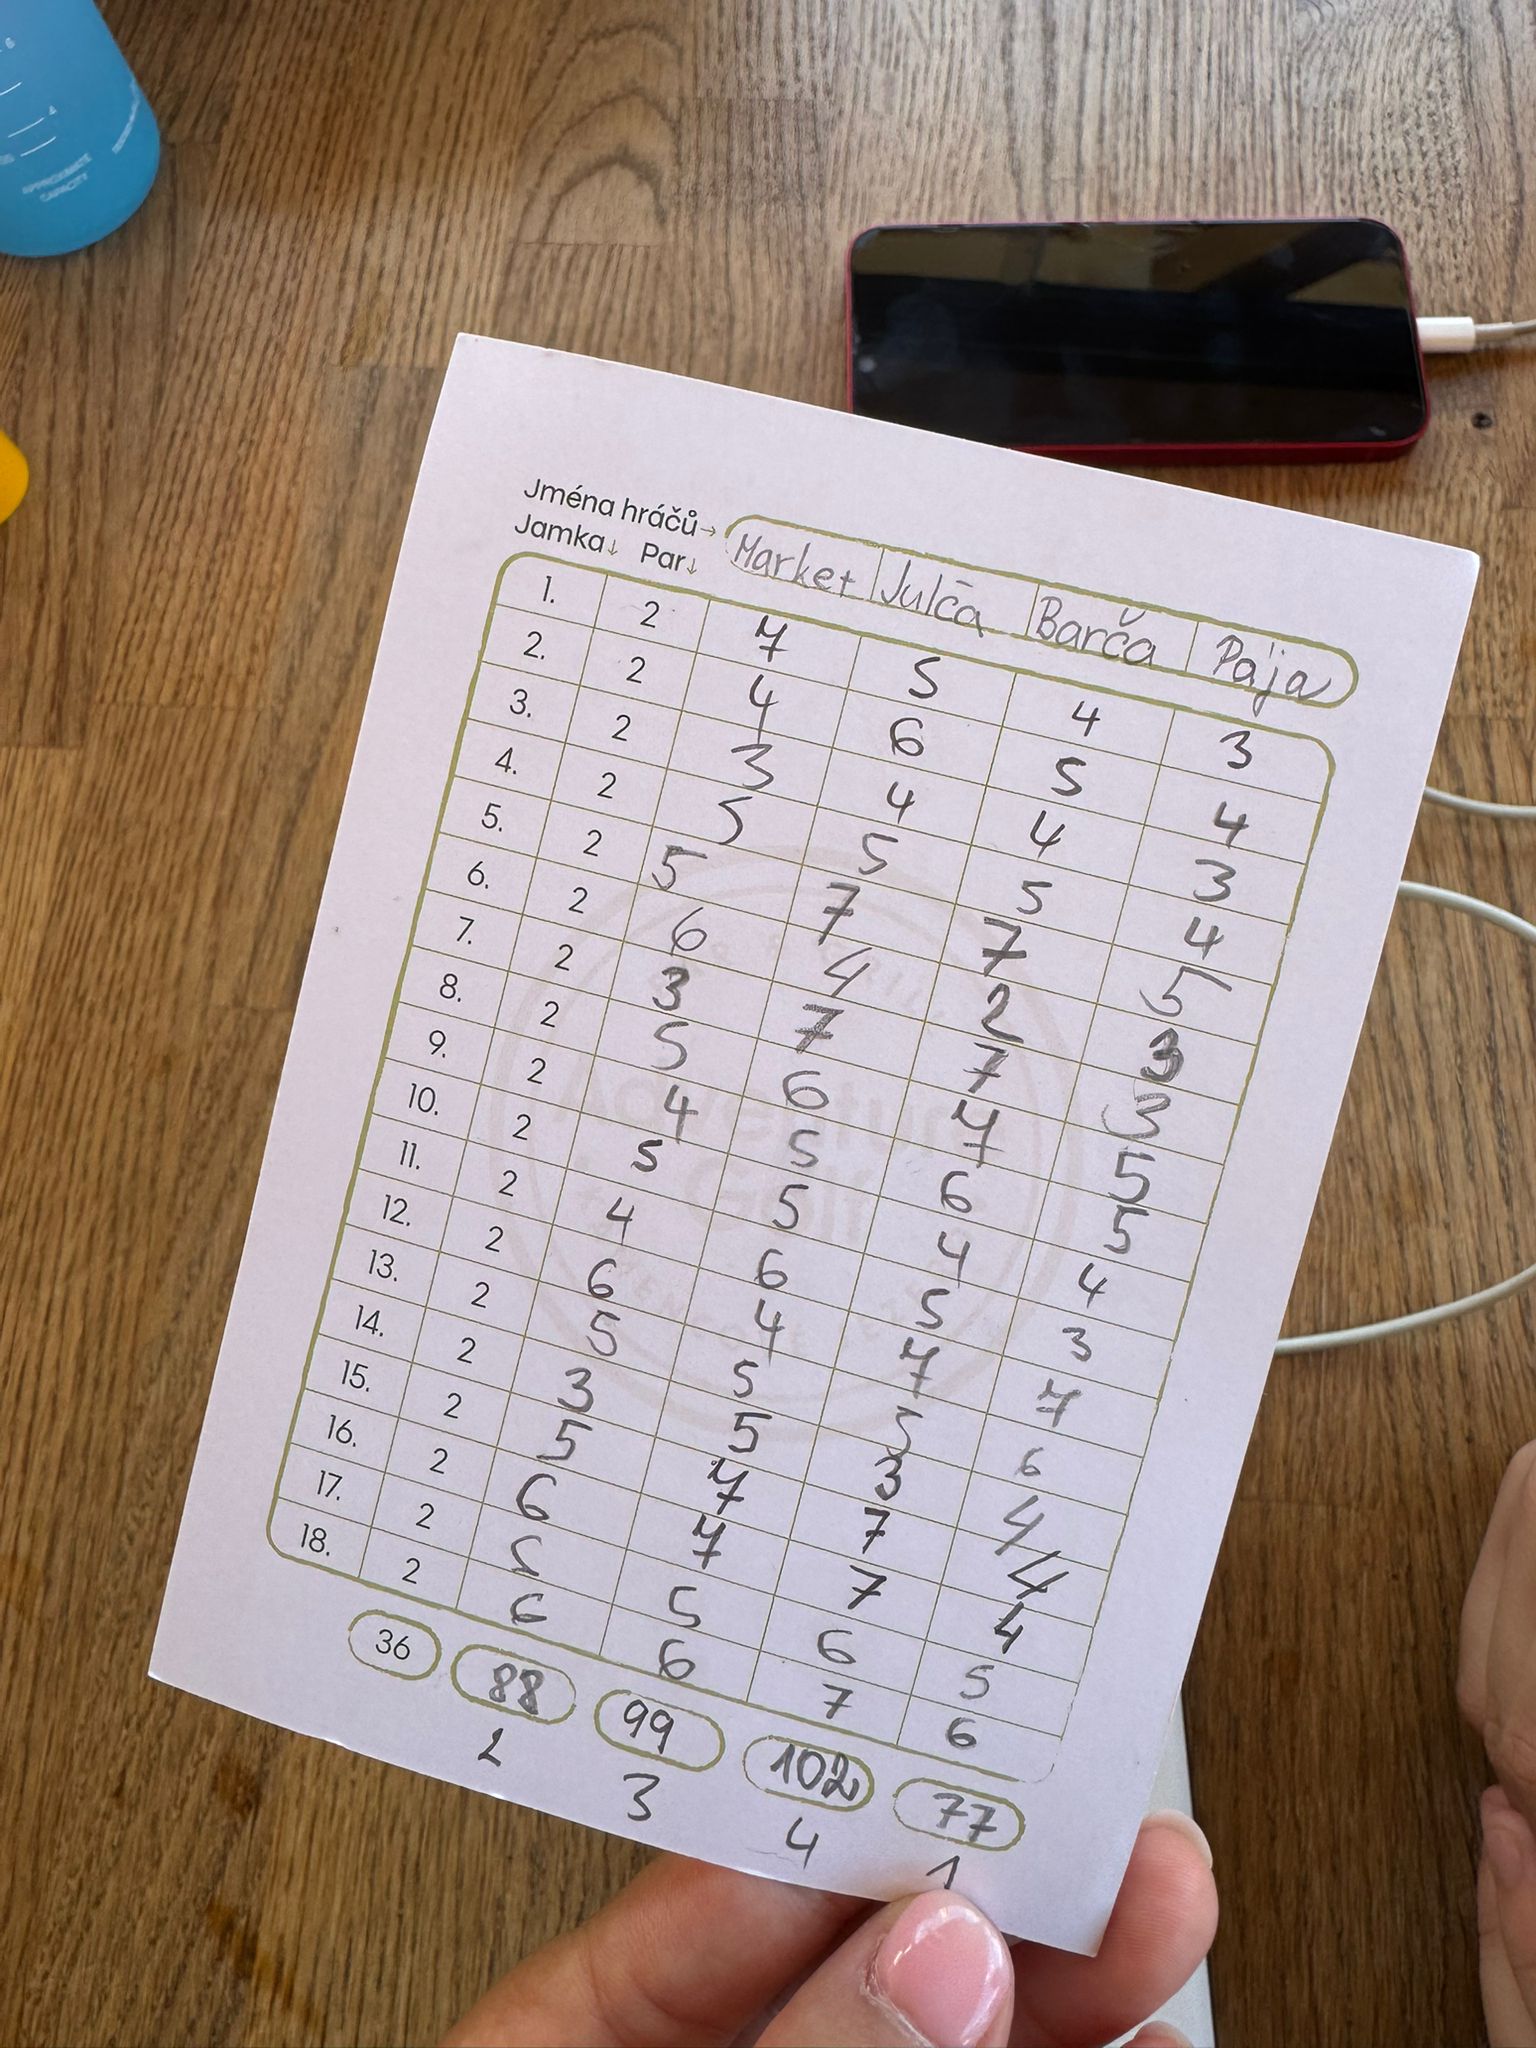 Jména hráčů→
Jamka↓ Par↓ Market Julča Barča Pája
1. 2 7 5 4 3
2. 2 4 6 5 4
3. 2 3 4 4 3
4. 2 5 5 5 4
5. 2 5 7 7 5
6. 2 6 4 2 3
7. 2 3 7 7 3
8. 2 5 6 7 5
9. 2 4 5 6 5
10. 2 5 5 4 4
11. 2 4 6 5 3
12. 2 6 4 7 7
13. 2 5 5 6
14. 2 3 5 3 4
15. 2 5 7 7 4
16. 2 6 7 7 4
17. 2 5 5 6 5
18. 2 6 6 7 6
36 88 99 102 77
2 3 4 1
Adventure
Golf
6
4
APPROXIMATE
CAPACITY